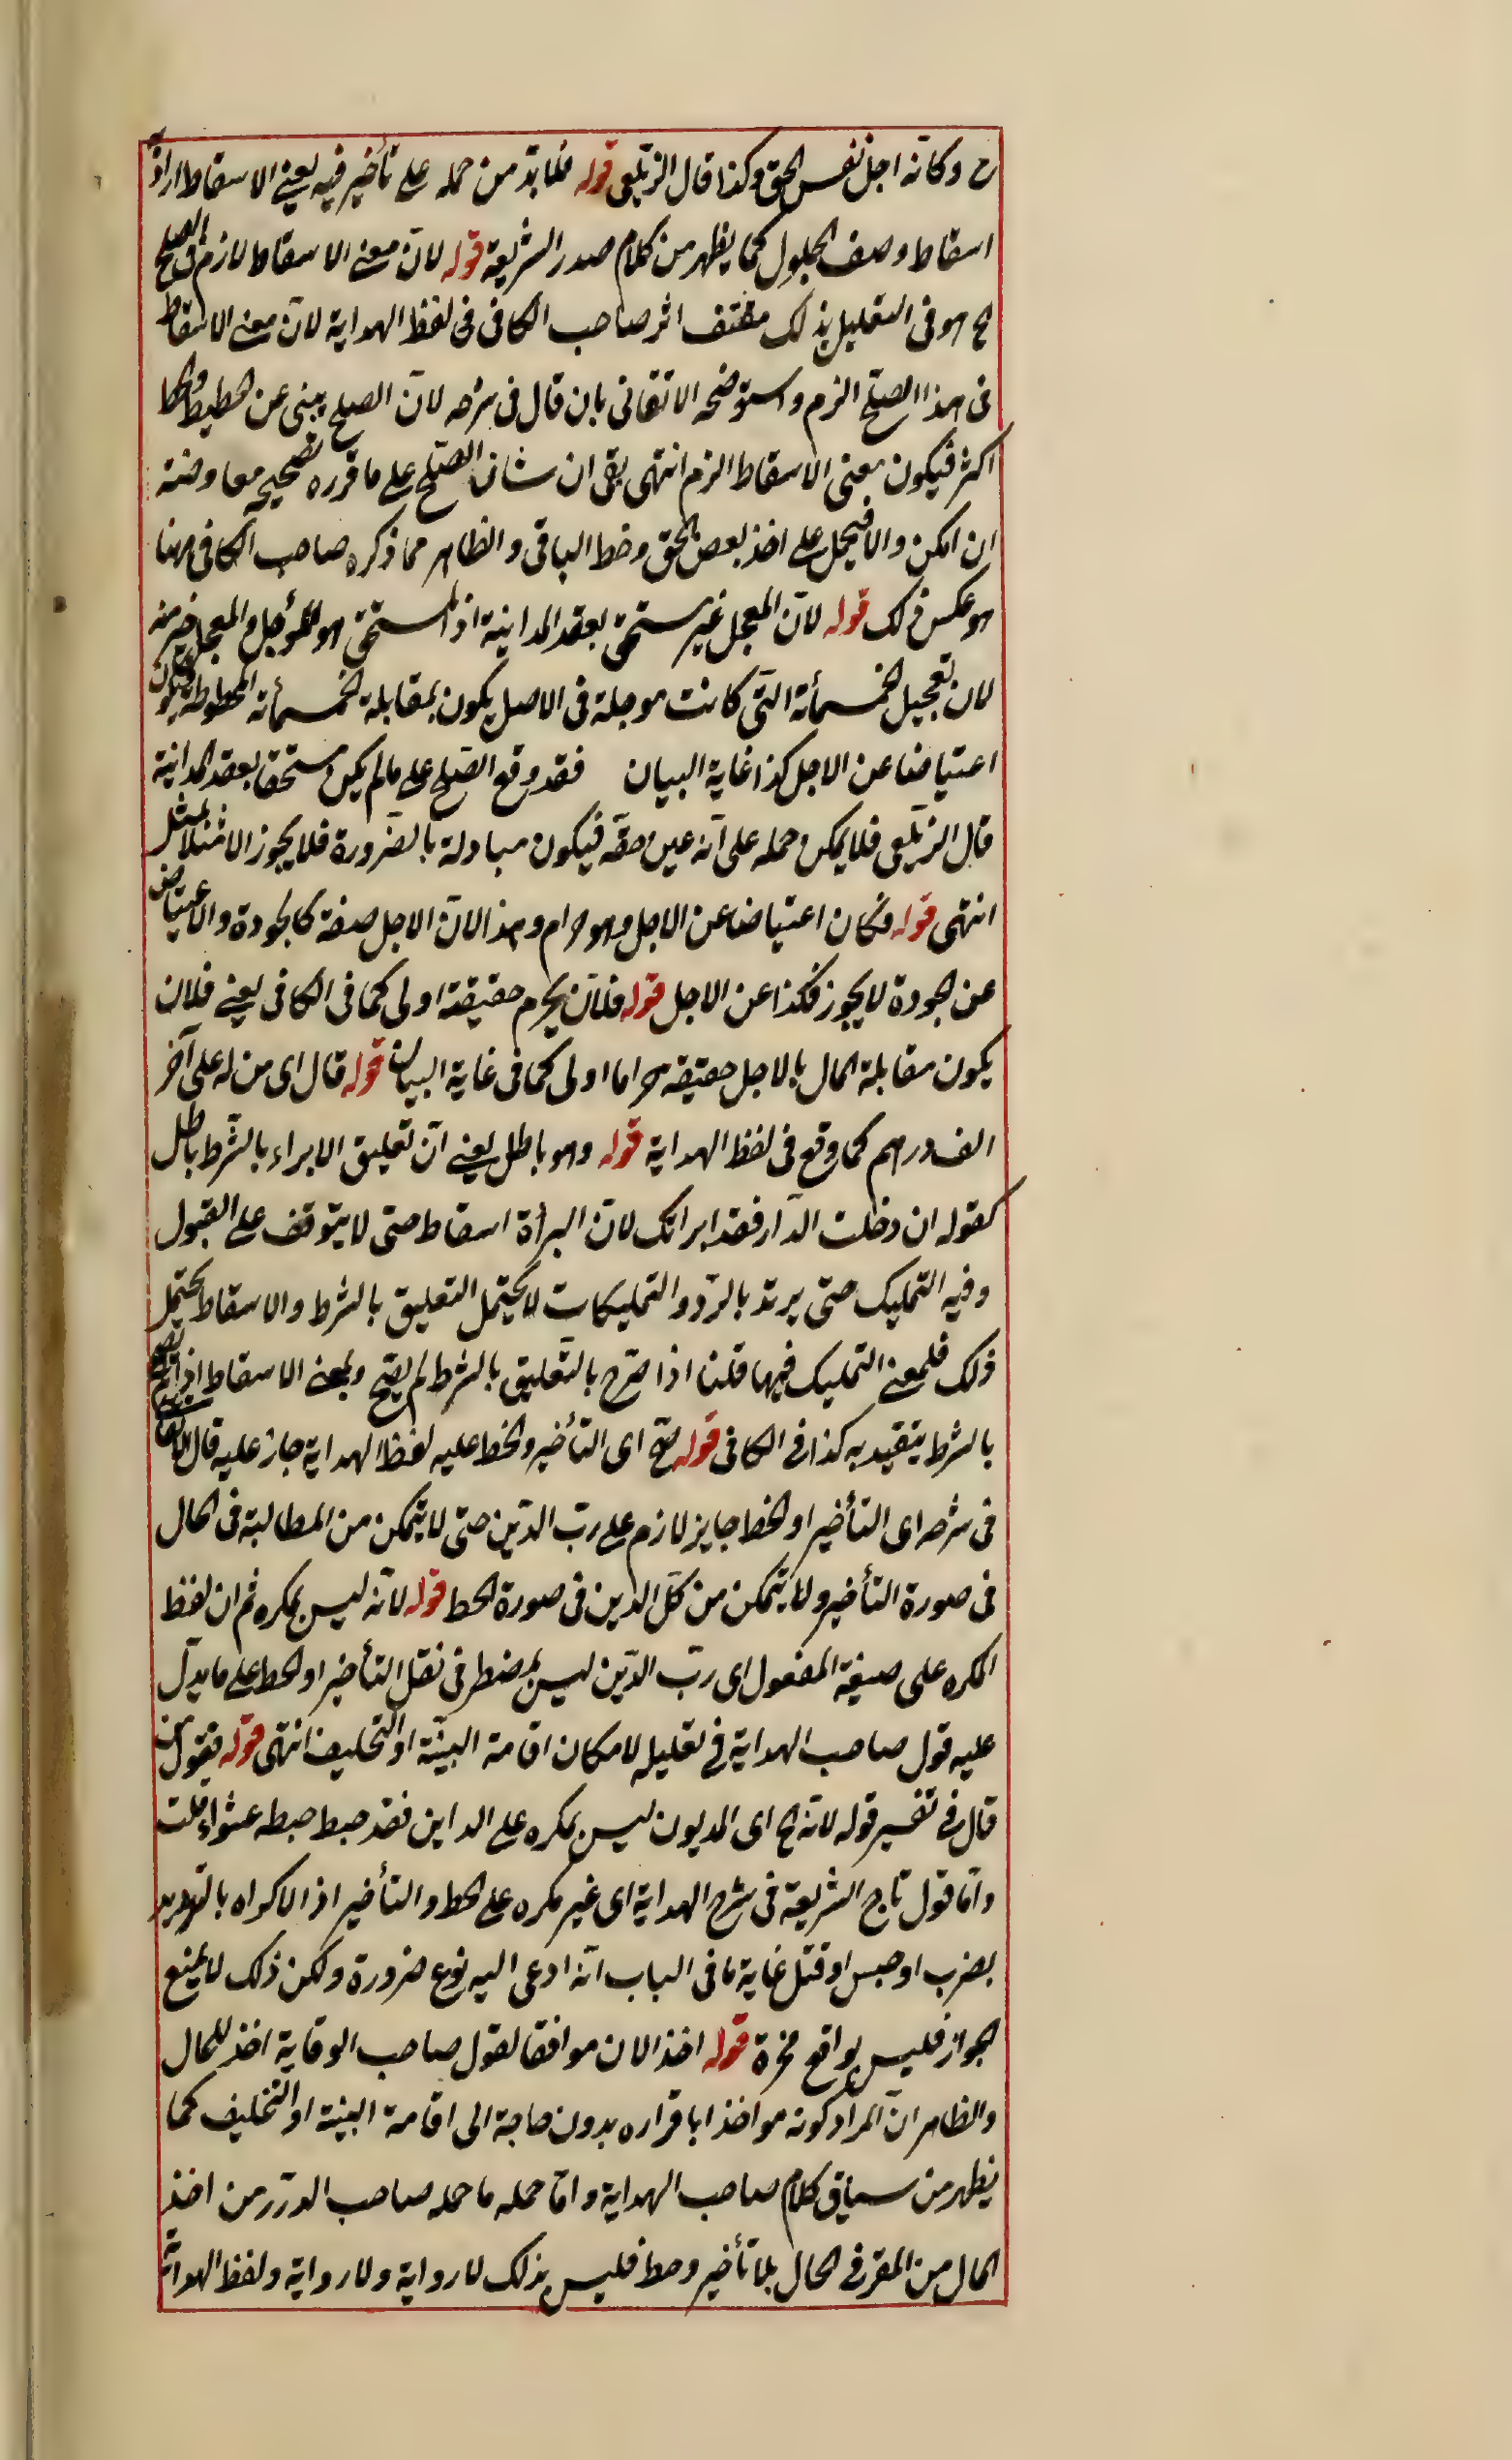 ح وكانه اجل نفس الحق وكذا قال الزيلعى قوله فلا بد من حمله على تأخير فيه يعنى الاسقاط اراد به
اسقاط وصف الحلول كما يظهر من كلام صدر الشريعة قوله لان معنى الاسقاط لازم فى الصلح
الخ هو فى التعليل بذلك مقتف اثر صاحب الكافى فى لفظ الهداية لان معنى الاسقاط
فى هذا الصلح الزم واستوضحه الاتقانى بان قال فى شرحه لان الصلح ينبى عن الحطيطة والحط
اكثر فيكون معنى الاسقاط الزم انتهى بقى ان شان الصلح على ما قرره تصحيحه معاوضة
ان امكن والا فيحمل على اخذ بعض الحق وحط الباقى والظاهر مما ذكره صاحب الكافى ههنا
هو عكس ذلك قوله لان المعجل غير مستحق بعقد المداينة اذ المستحق هو المؤجل والمعجل خير منه
لان تعجيل الخمسمأة التى كانت موجلة فى الاصل يكون بمقابلة الخمسمأة المحطوطة فيكون
اعتياضا عن الاجل كذا غاية البيان فقد وقع الصلح على ما لم يكن مستحقا بعقد المداينة
قال الزيلعى فلا يمكن حمله على انه عين حقه فيكون مبادلة بالضرورة فلا يجوز الا مثلا بمثل
انتهى قوله وكان اعتياضا عن الاجل وهو حرام وهذا لان الاجل صفة كالجودة والاعتياض
عن الجودة لا يجوز فكذا عن الاجل قوله فلان يحرم حقيقة اولى كما فى الكافى يعنى فلان
يكون مقابلة المال بالاجل حقيقه حراما اولى كما فى غاية البيان قوله قال اى من له على آخر
الف درهم كما وقع فى لفظ الهداية قوله وهو باطل يعنى ان تعليق الابراء بالشرط باطل
كقوله ان دخلت الدار فقد ابراتك لان البرأة اسقاط حتى لا يتوقف على القبول
وفيه التمليك حتى يرتد بالرد والتمليكات لا يحتمل التعليق بالشرط والاسقاط يحتمل
ذلك فلمعنى التمليك فيها قلنا اذا صرح بالتعليق بالشرط لم يصح ولمعنى الاسقاط اذا لم يصرح
بالشرط يتقيد به كذا فى الكافى قوله صح اى التأخير والحط عليه لفظ الهداية جاز عليه قال الاتقانى
فى شرحه اى التأخير او الحط جايز لازم على رب الدين حتى لا يتمكن من المطالبة فى الحال
فى صورة التأخير ولا يتمكن من كل الدين فى صورة الحط قوله لانه ليس بمكره ثم ان لفظ
المكره على صيغة المفعول اى رب الدين ليس بمضطر فى نقل التأخير او الحط على ما يدل
عليه قول صاحب الهداية فى تعليله لامكان اقامة البينة او التحليف انتهى قوله فقول من
قال فى تفسير قوله لانه الخ اى المديون ليس بمكره على الداين فقد خبط خبطه عشواء قلت
واما قول تاج الشريعة فى شرح الهداية اى غير مكره على الحط والتأخير اذ الاكراه بالتهديد
بضرب او حبس او قتل غاية ما فى الباب انه ادعى اليه نوع ضرورة ولكن ذلك لا يمنع
الجواز فليس بواقع قوله اخذ الان موافقا لقول صاحب الوقاية اخذ للحال
والظاهر ان المراد كونه مواخذا باقراره بدون حاجة الى اقامة البينة او التحليف كما
يظهر من سياق كلام صاحب الهداية واما حمله ما حمله صاحب الدرر من اخذ
المال من المقر فى الحال بلا تأخير وحط فليس بذلك لا رواية ولا رواية ولفظ الهداية